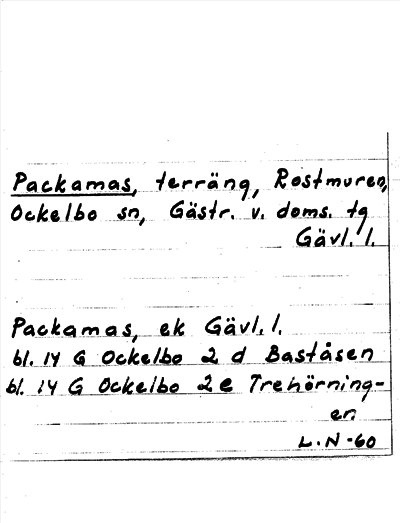 Packamas, terräng, Rostmuren,
Ockelbo sn, Gästr. v. doms. tg
Gävl. l.
Packamas, ek Gävl. l.
bl. 14 G Ockelbo 2 d Baståsen
bl. 14 G Ockelbo 2 e Trehörning-
en
L.N -60